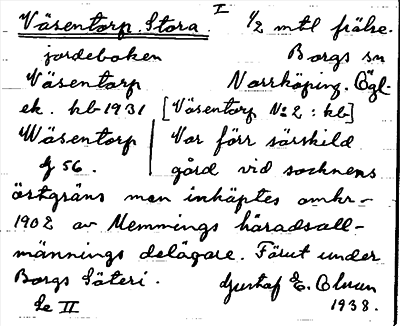 Väsentorp. Stora I 1/2 mtl frälse.
jordeboken Borgs sn
Väsentorp Norrköping. Ögl.
ek. kb 1931 [Väsentorp No 2 : kb]
Wäsentorp Var förr särskild
G 56. gård vid socknens
östgräns men inköptes omkr-
1902 av Memmings häradsall-
männings delägare. Förut under
Borgs Säteri. Gustaf E. Olsson
Se II 1938.